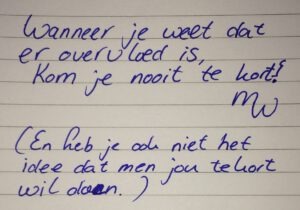 Wanneer je weet dat
er overvloed is,
Kom je nooit te kort!
MW
(En heb je ook niet het
idee dat men jou tekort
wil doen.)